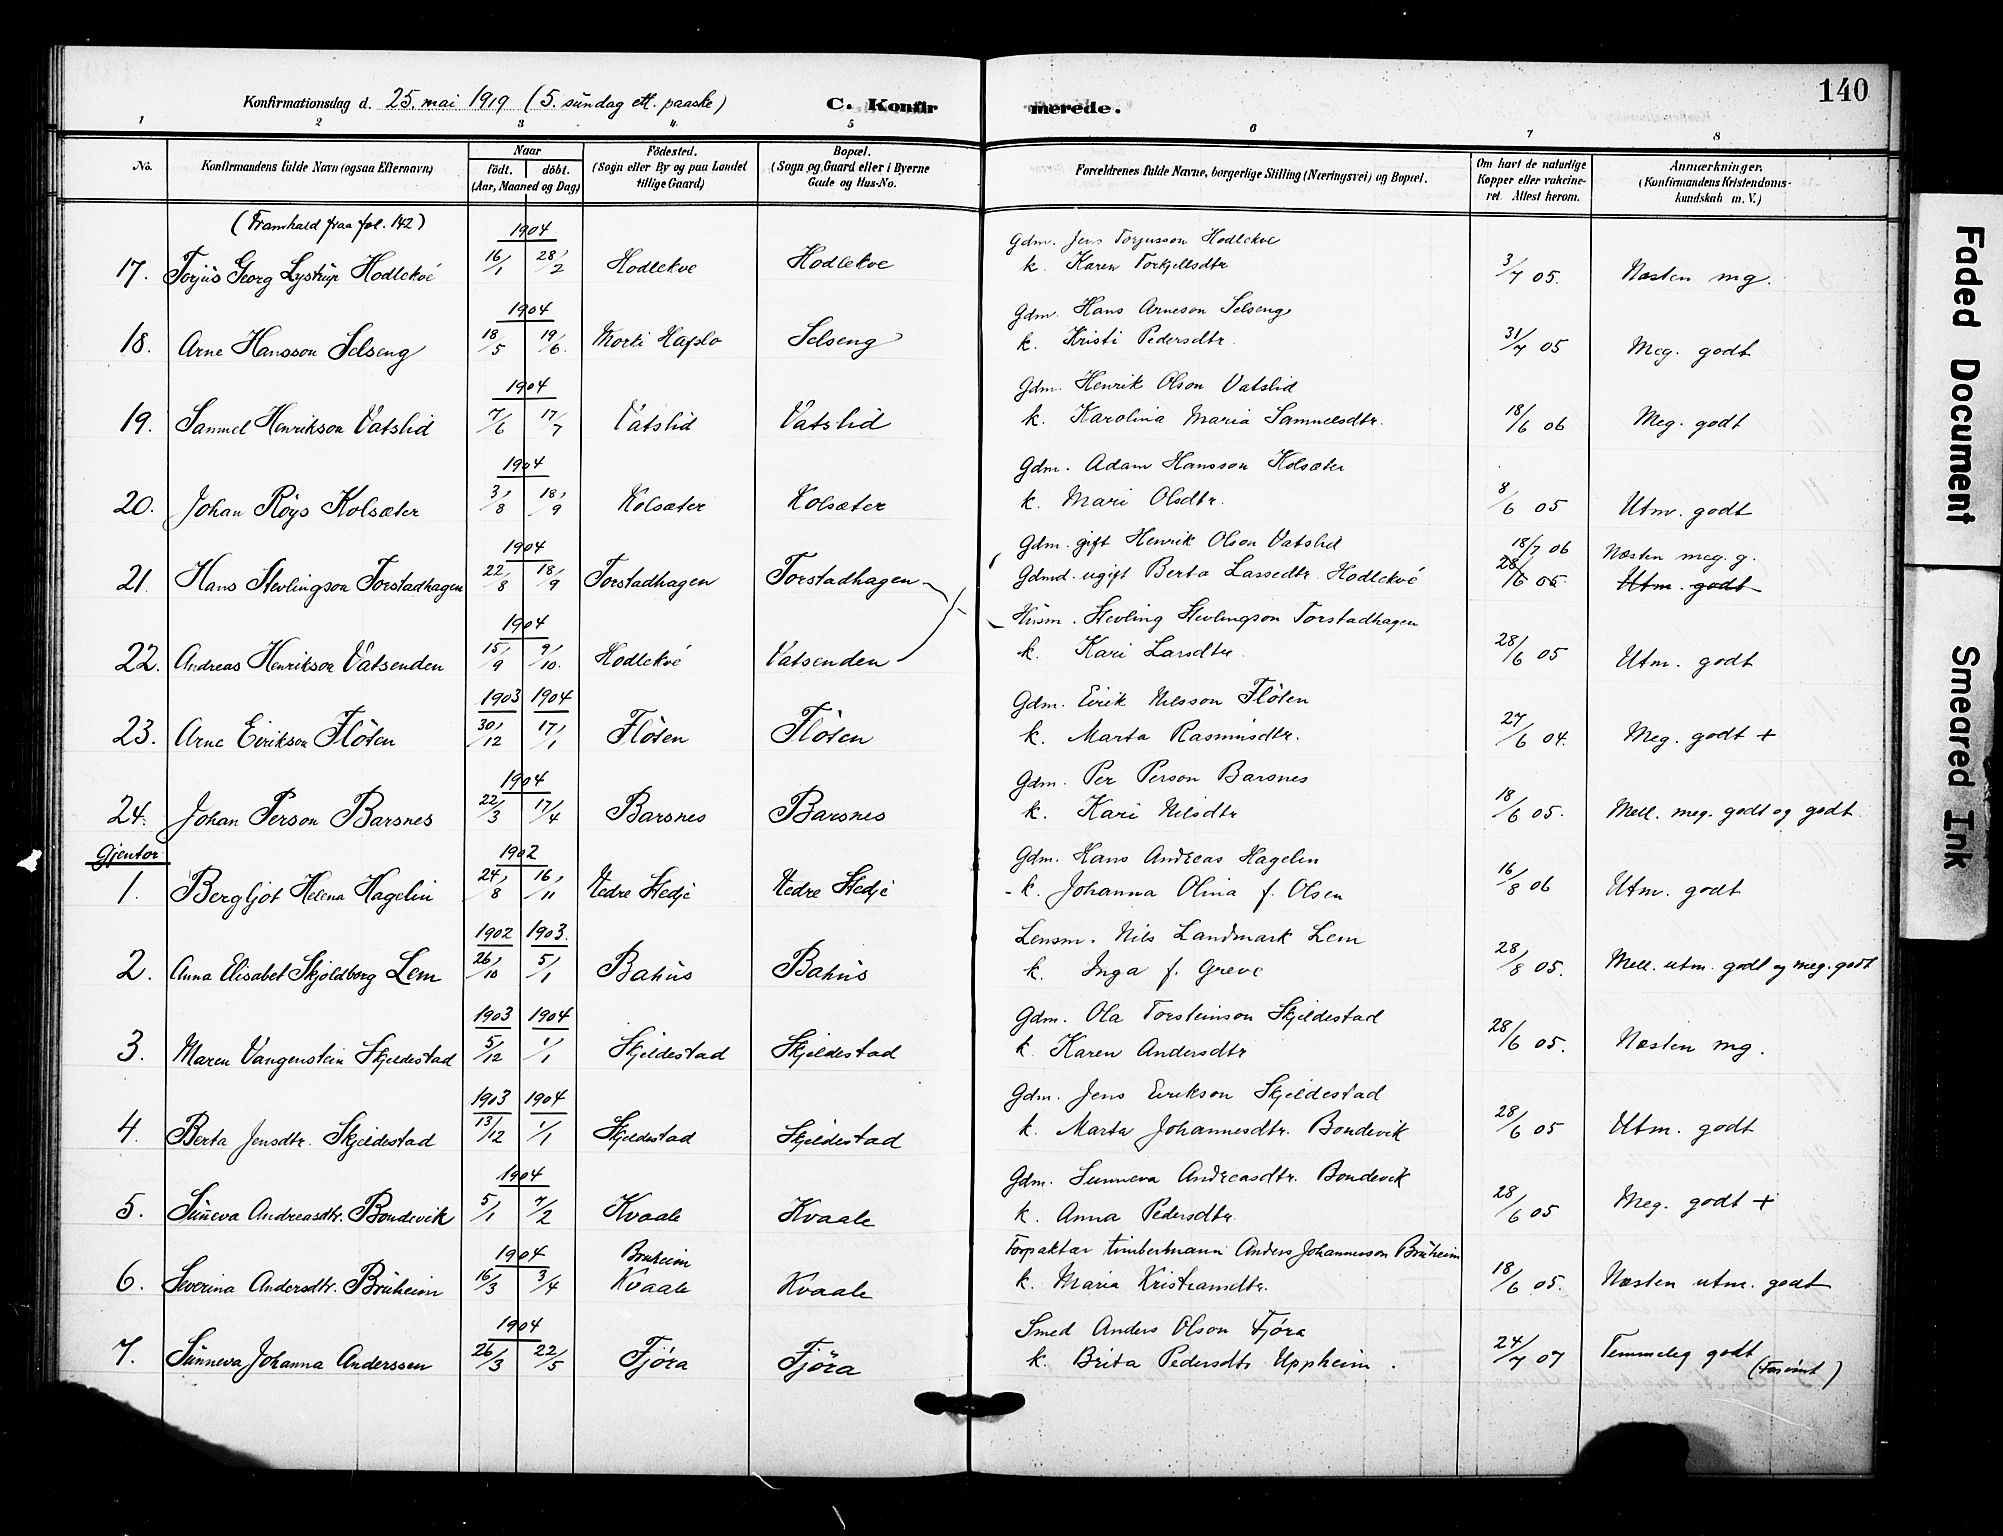 140
Konfirmationsdag d. 25. mai 1919 (5. sundag ett. paaske) C. Konfirmerede.
1 2 3 4 5 6 7 8
No. Konfirmandens fulde Navn (ogsaa Efternavn) Naar födt. döbt. (Aar, Maaned og Dag) Födested. (Sogn eller By og paa Landet tillige Gaard) Bopæl. (Sogn og Gaard eller i Byerne Gade og Hus-No. Forældrenes fulde Navne, borgerlige Stilling (Næringsvei) og Bopæl. Om havt de naturlige Kopper eller vakcineret Attest herom. Anmærkninger. (Konfirmandens Kristendomskundskab m. V.)
(Framhald fraa fol. 142)
1904 Gdm. Jens Torjusson Hodlekve
17. Torjus Georg Lystrup Hodlekve 16/1 28/2 Hodlekve Hodlekve k. Karen Torkjellsdtr 3/7 05. Næsten mg.
1904 Gdm. Hans Arneson Selseng
18. Arne Hansson Selseng 18/5 19/6. Morki Hafslo Selseng k. Kristi Pedersdtr. 31/7 05 Meg. godt
1904 Gdm. Henrik Olson Vatslid
19. Samuel Henrikson Vatslid 7/6 17/7 Vatslid Vatslid k. Karolina Maria Samuelsdtr. 18/6 06 Meg. godt
1904 Gdm. Adam Hansson Kolsæter
20. Johan Röys Kolsæter 3/8 18/9 Kolsæter Kolsæter k. Mari Olsdtr. 8/6 05 Utm. godt
1904 Gdm. gift Henrik Olson Vatslid 18/7 06 Næsten meg. g.
21. Hans Stevlingson Torstadhagen 22/8 18/9 Torstadhagen Torstadhagen Gdmd. ugift Berta Lassedtr. Hodlekve 28/6 05 Utm. godt
1904 Husm. Stevling Stevlingson Torstadhagen
22. Andreas Henrikson Vatsenden 15/9 9/10. Hodlekve Vatsenden k. Kari Larsdtr. 28/6 05 Utm. godt
1903 1904 Gdm. Eirik Nilsson Flöten
23. Arne Eirikson Flöten 30/12 17/1 Flöten Flöten k. Marta Rasmusdtr. 27/6 04. Meg. godt +
1904 Gdm. Per Person Barsnes
24. Johan Person Barsnes 22/3 17/4 Barsnes Barsnes k. Kari Nilsdtr 18/6 05. Mell. meg. godt og godt
Gjentor
1902 Gdm. Hans Andreas Hagelin
1. Bergljot Helena Hagelin 24/8 16/11 Nedre Stedje Nedre Stedje k. Johanna Olina f. Olsen 16/8 06 Utm. godt
1902 1903. Lensm. Nils Landmark Lem
2. Anna Elisabet Skjoldborg Lem 26/10 5/1 Bahus Bahus k. Inga f. Greve 28/8 05. Mell. utm. godt og meg. godt
1903 1904 Gdm. Ola Torsteinson Skjeldestad
3. Maren Vangenstein Skjeldestad 5/12 1/1 Skjeldestad Skjeldestad k. Karen Andersdtr 28/6 05. Næsten mg.
1903 1904 Gdm. Jens Eirikson Skjeldestad
4. Berta Jensdtr. Skjeldestad 13/12 1/1 Skjeldestad Skjeldestad k. Marta Johannesdtr. Bondevik 28/6 05 Utm. godt
1904 Gdm. Sunneva Andreasdtr. Bondevik
5. Sunneva Andreasdtr. Bondevik 5/1 7/2 Kvaale Kvaale k. Anna Pedersdtr. 28/6 05 Meg. godt +
1904 Bruheim Forpaktar timbermann Anders Johannesson Bruheim
6. Severina Andersdtr. Bruheim 16/3 3/4 Kvaale Kvaale k. Maria Kristiansdtr. 18/6 05. Næsten utm. godt
1904 Smed Anders Olson Fjöra
7. Sunneva Johanna Anderssen 26/3 22/5 Fjöra Fjöra k. Brita Pedersdtr Uppheim. 24/7 07 Temmeleg godt
Faded Document
Smeared Ink